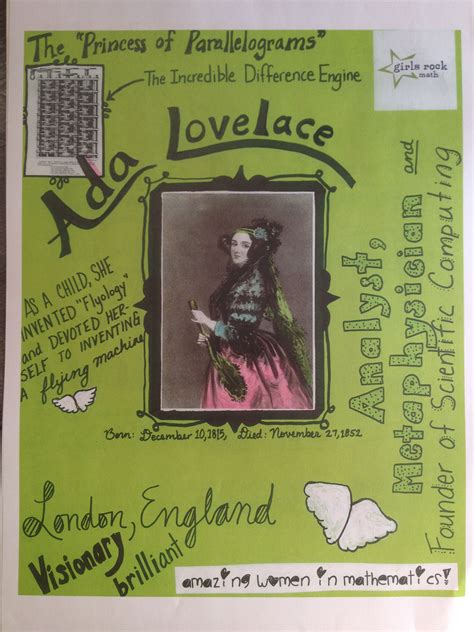 The "Princess of Parallelograms"
The Incredible Difference Engine
girls rock
math
Ada Lovelace
AS A CHILD, SHE
INVENTED "Flyology"
and DEVOTED HER-
SELF TO INVENTING
A flying machine
Analyst,
Metaphysician and
Founder of Scientific Computing
Born: December 10, 1815, Died: November 27, 1852
London, England
Visionary
brilliant
amazing women in mathematics!